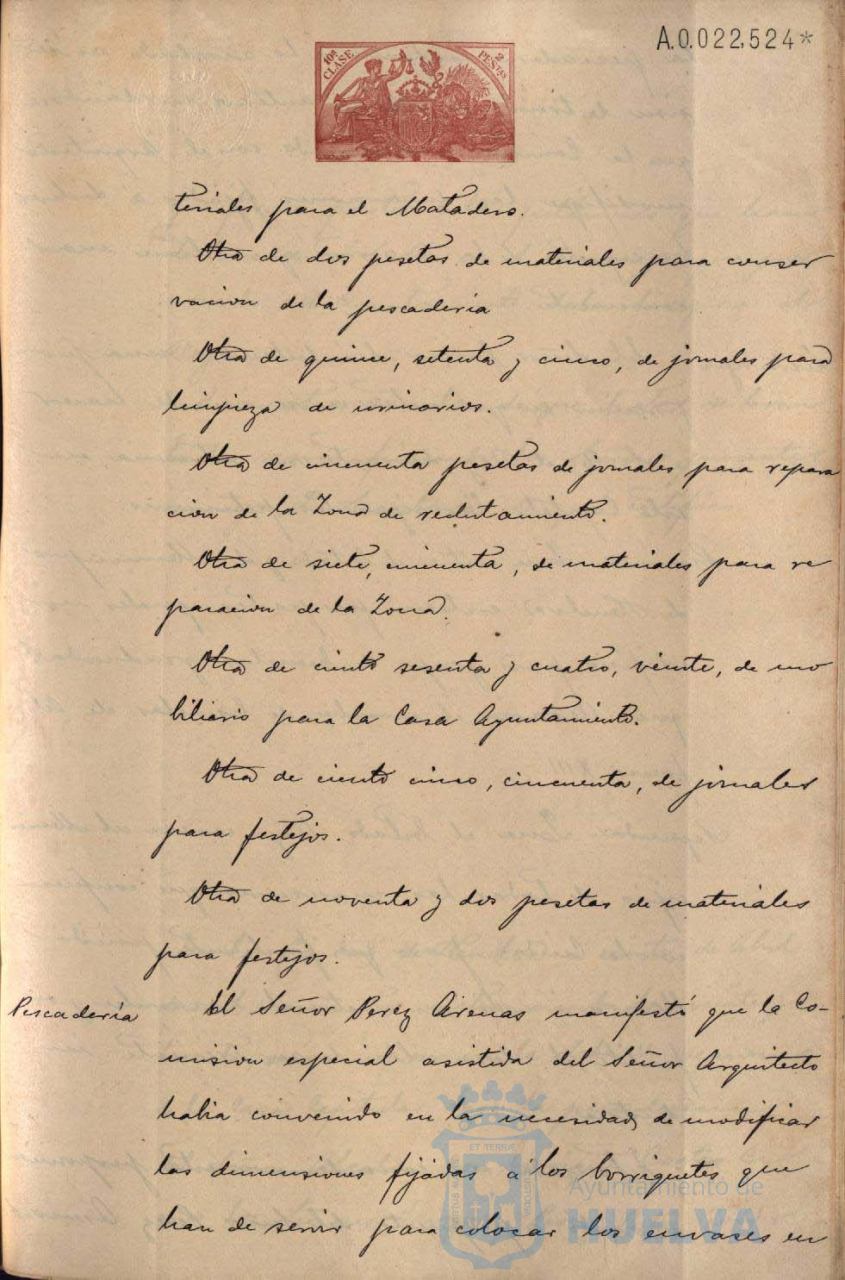 A.0.022,524*
10ª CLASE 2 PESETAS
teriales para el Matadero.
Otra de dos pesetas de materiales para conser
vacion de la pescaderia
Otra de quince, setenta y cinco, de jornales para
limpieza de urinarios.
Otra de cincuenta pesetas de jornales para repara
cion de la Zona de reclutamiento.
Otra de siete, cincuenta, de materiales para re
paracion de la Zona.
Otra de ciento sesenta y cuatro, veinte, de mo
biliario para la Casa Ayuntamiento.
Otra de ciento cinco, cincuenta, de jornales
para festejos.
Otra de noventa y dos pesetas de materiales
para festejos.
Pescadería
El Señor Perez Arenas manifestó que la Co-
mision especial asistida del Señor Arquitecto
habia convenido en la necesidad de modificar
las dimensiones fijadas a los borriquetes que
han de servir para colocar los envases en
Ayuntamiento de
HUELVA